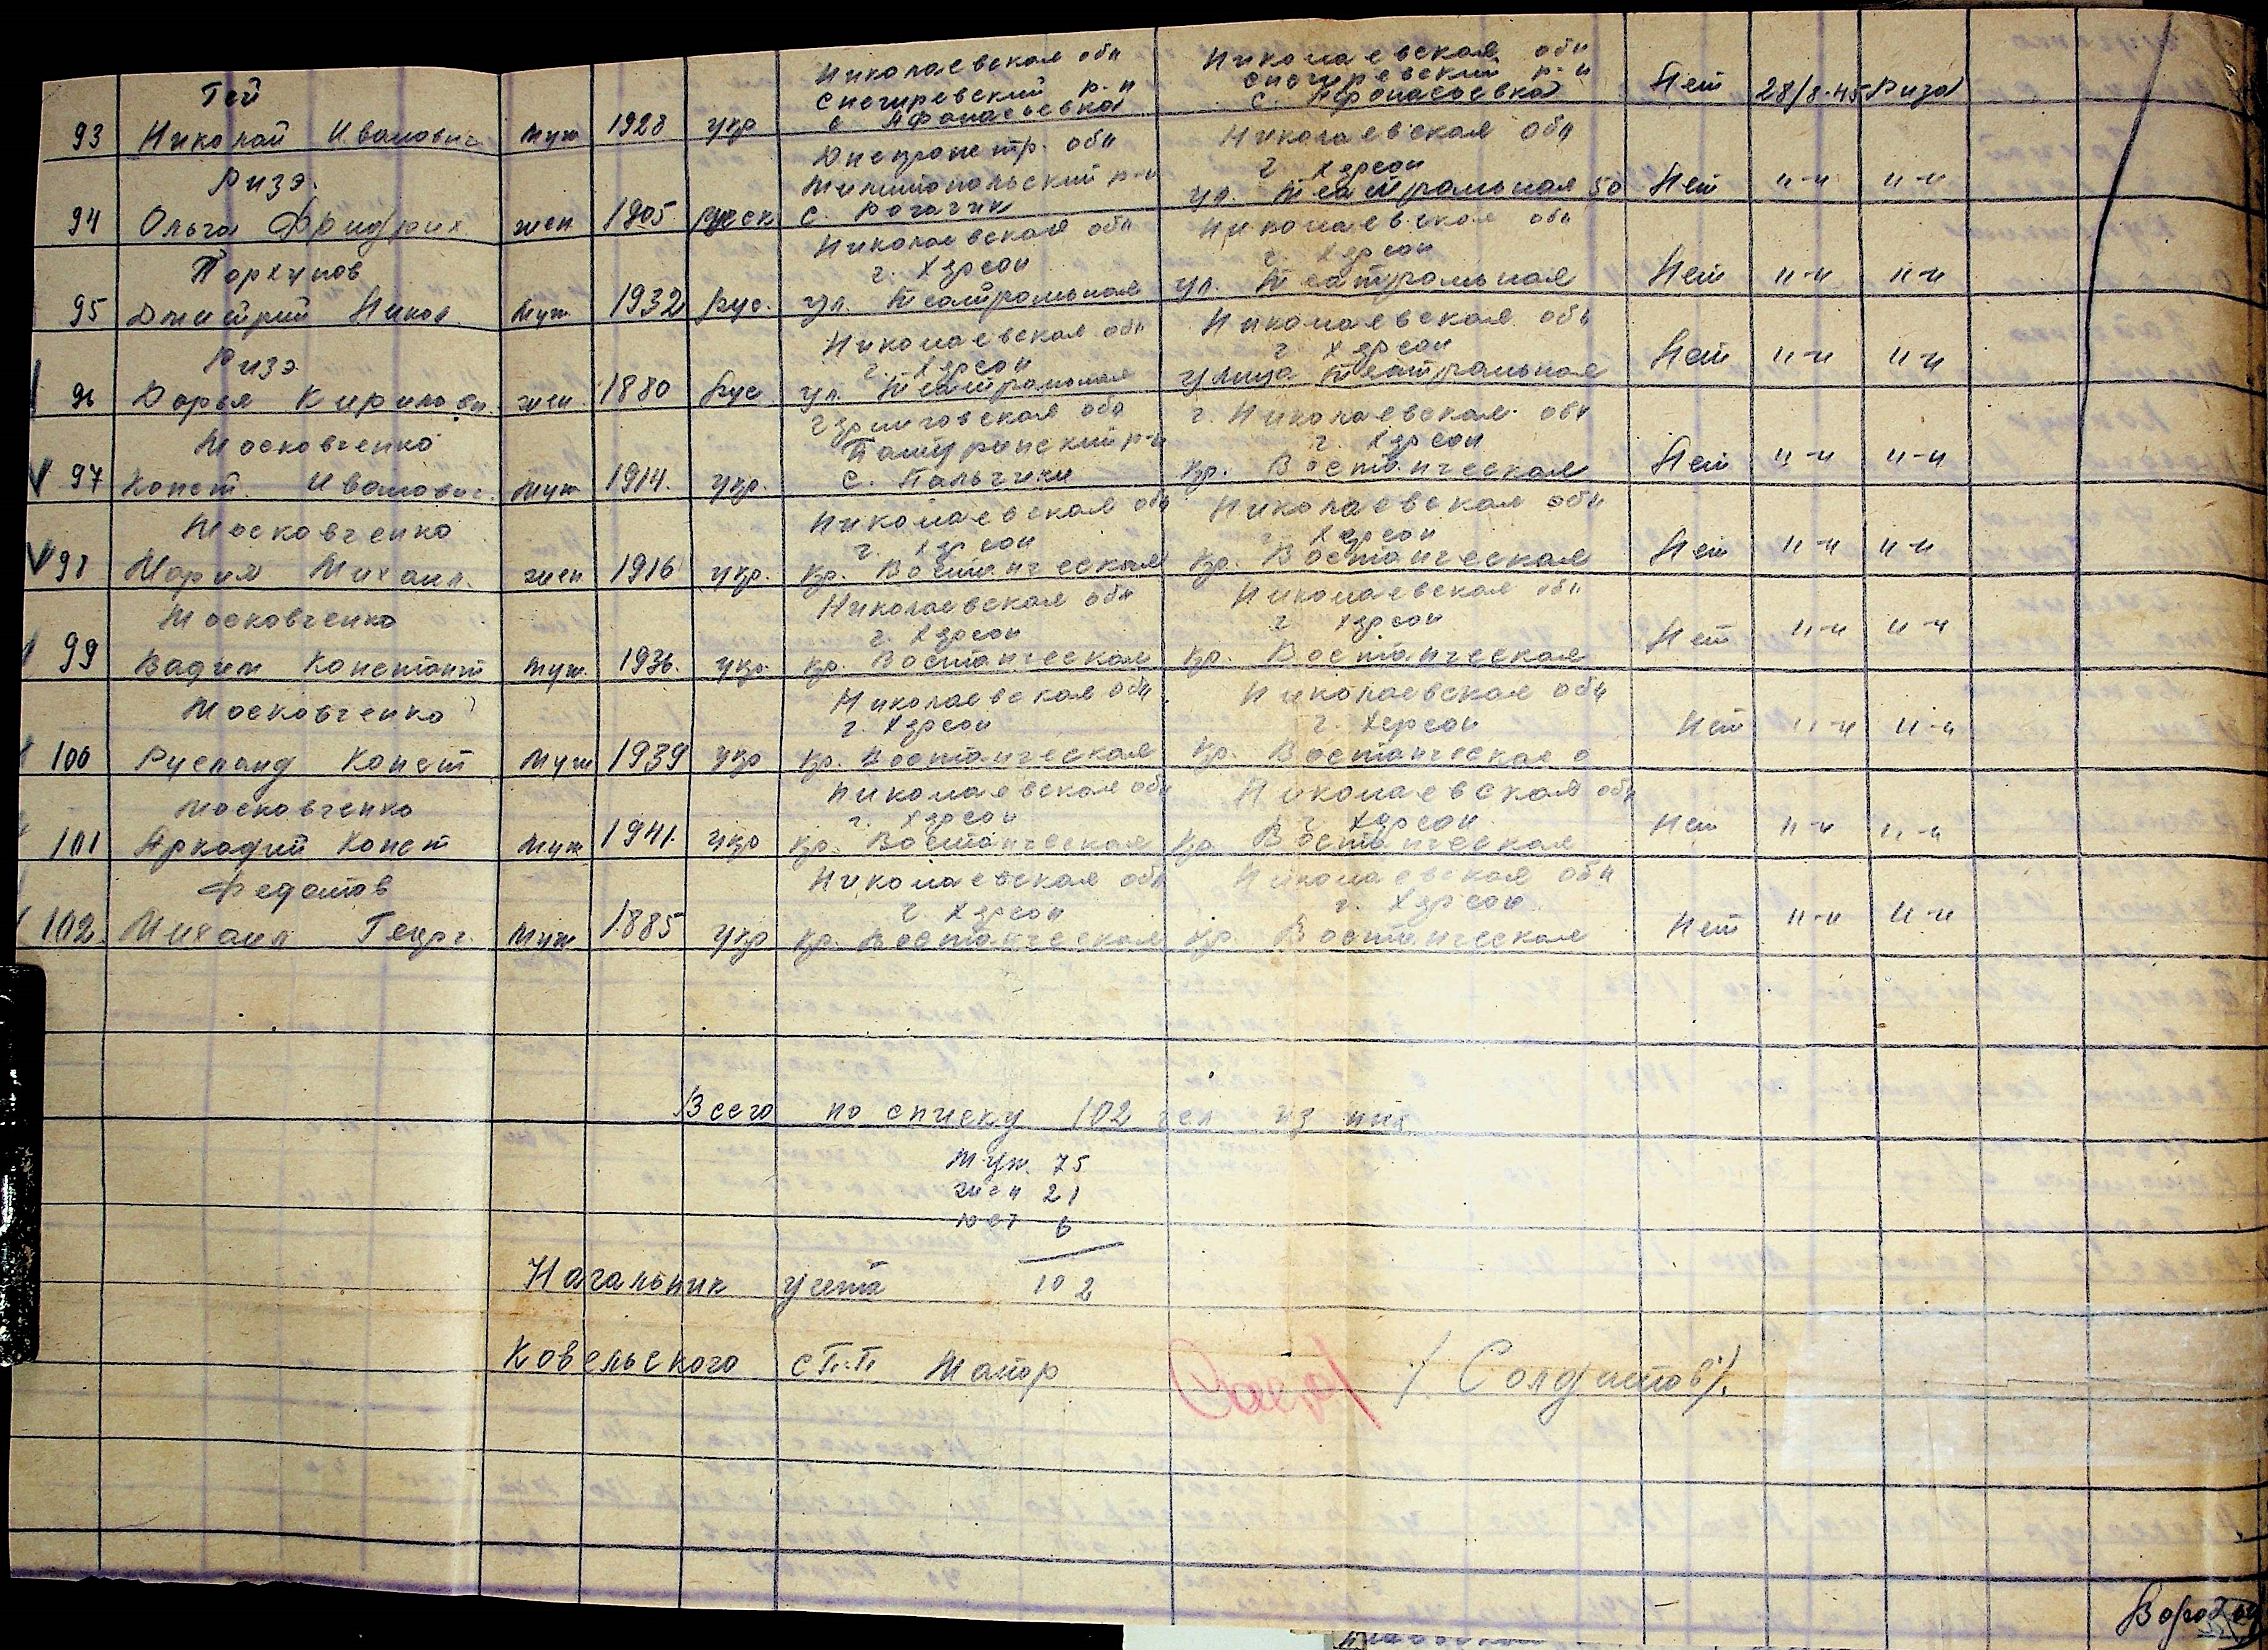 Гей Николаевская обл Николаевская обл
Снегиревский р-н Снегиревский р-н
93 Николай Иванович муж 1928 укр с Афанасьевка с. Афонасоевка Нет 28/8-45 Риза
Ризэ. Днепропетр. обл Николаевская обл
Милитопольский р-н г Херсон
94 Ольга Фридрих жен 1905 русск с. Рогачик ул. Театральная 50 Нет "-" "-"
Торхунов Николаевская обл Николаевская обл
г. Херсон г. Херсон
95 Дмитрий Никол. муж 1932 Рус. ул. Театральная ул. Театральная Нет "-" "-"
Ризэ Николаевская обл Николаевская обл
г. Херсон г Херсон
96 Дарья Кириловн. жен. 1880 Рус ул. Театральная улица Театральная Нет "-" "-"
Московченко Черниговская обл г. Николаевская обл
р-н г. Херсон
97 Конст. Иванович. муж 1914. укр. с. Пальчики кр. Востаническая Нет "-" "-"
Московченко Николаевская обл Николаевская обл
г. Херсон г Херсон
98 Мария Михаил. жен 1916 укр. кр. Востаническая кр. Востаническая Нет "-" "-"
Московченко Николаевская обл Николаевская обл
г. Херсон г Херсон
99 Вадим Константт муж. 1936. укр. кр. Востаническая кр. Востаническая Нет "-" "-"
Московченко Николаевская обл Николаевская обл
г. Херсон г. Херсон
100 Русланд Конст муж 1939 укр кр. Востаническая кр. Востаническая Нет "-" "-"
Московченко Николаевская обл Николаевская обл
г. Херсон г Херсон
101 Аркадий Конст муж 1941. укр кр. Востаническая кр Востаническая Нет "-" "-"
Федотов Николаевская обл Николаевская обл
г. Херсон г. Херсон
102. Михаил Георг. муж 1885 укр кр. Востаническая кр. Востаническая Нет "-" "-"
Всего по списку 102 чел из них
муж. 75
жен 21
дет 6
102
Начальник учета
Ковельского с П.П. Маиор /. Солдатов /.